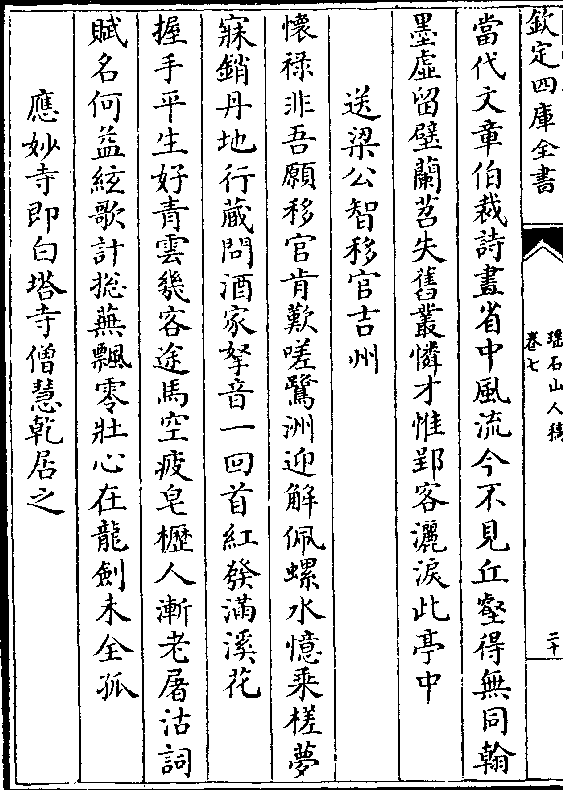 欽定四庫全書
瑶石山人稿
卷七
二十
當代文章伯裁詩畫省中風流今不見丘壑得無同翰
墨虚留壁蘭苕失舊叢憐才惟郢客灑淚此亭中
送梁公智移官吉州
懷禄非吾願移官肯歎嗟鷺洲迎解佩螺水憶乘槎夢
寐銷丹地行蔵問酒家跫音一回首紅發滿溪花
握手平生好青雲幾客途馬空疲皂櫪人漸老屠沽詞
賦名何益絃歌計揔蕪飄零壯心在龍劍未全孤
應妙寺即白塔寺僧慧乾居之